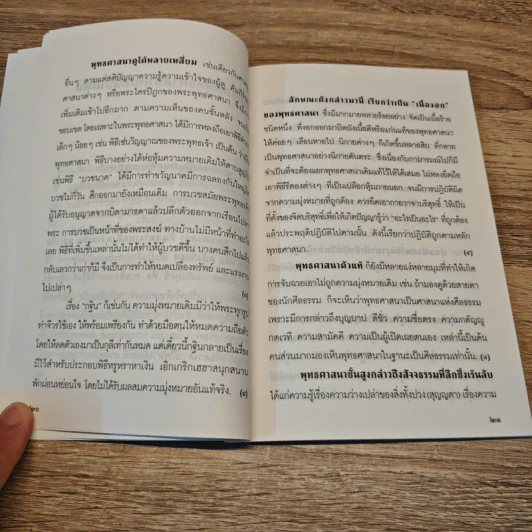 พุทธศาสนาดูได้หลายเหลี่ยม เช่นเดียวกับศาสนา
อื่นๆ ตามแต่สติปัญญาความรู้ความเข้าใจของผู้ดู
ศาสนาต่างๆ หรือพระไตรปิฎกของพระพุทธศาสนา จึงมี
เพิ่มเติมเข้าไปอีกมาก ตามความเห็นของคนชั้นหลัง
ขอบเขต โดยเฉพาะในพุทธศาสนา ได้มีการหลงถือเอาพิธี
เล็กๆ น้อยๆ เช่น พิธีเซ่นวิญญาณของพระพุทธเจ้า เป็นต้น
พุทธศาสนา พิธีบางอย่างได้ห่อหุ้มความหมายเดิมให้
เช่นพิธี "บวชนาค" ได้มีการทำขวัญนาคมีการฉลองกันใหญ่
บวชไม่กี่วัน สึกออกมายังเหมือนเดิม การบวชสมัยพระพุทธเจ้า
ผู้ได้รับอนุญาตจากบิดามารดาแล้วปลีกตัวออกจากเรือนไป
พระ การบวชเป็นหน้าที่ของพระสงฆ์ ทางบ้านไม่มีหน้าที่ทำอะไร
เลย พิธีที่เพิ่มขึ้นเหล่านั้นไม่ได้ทำให้ผู้บวชดีขึ้น บางคนสึกไปแล้ว
กลับเลวกว่าเก่าก็มี จึงเป็นการทำให้หมดเปลืองทรัพย์ และแรงงาน
ไปเปล่าๆ
เรื่อง "กฐิน" ก็เช่นกัน ความมุ่งหมายเดิมมีว่าให้พระทุกรูป
ทำจีวรใช้เอง ให้พร้อมเพรียงกัน ทำด้วยมือตนให้หมดความถือตัว
โดยให้ลดตัวเองมาเป็นกุลีเท่ากันหมด แต่เดี๋ยวนี้กฐินกลายเป็นเรื่อง
มีไว้สำหรับประกอบพิธีหรูหราหาเงิน เอิกเกริกเฮฮาสนุกสนาน
พักผ่อนหย่อนใจ โดยไม่ได้รับผลสมความมุ่งหมายอันแท้จริง. (๘)
๒๐
ลักษณะดังกล่าวมานี้ เรียกว่าเป็น "เนื้องอก"
ของพุทธศาสนา ซึ่งมีมากมายหลายร้อยอย่าง จัดเป็นเนื้อร้าย
ชนิดหนึ่ง ที่งอกออกมาปิดบังเนื้อดีหรือแก่นแท้ของพุทธศาสนา
ให้ค่อยๆ เลือนหายไป นิกายต่างๆ ก็เกิดขึ้นหลายสิบ ที่กลาย
เป็นพุทธศาสนาอย่างนิกายตันตระ ซึ่งเนื่องกับกามารมณ์ไปก็มี
จำเป็นที่จะต้องแยกพุทธศาสนาเดิมแท้ไว้ให้ได้เสมอ ไม่หลงยึดถือ
เอาพิธีรีตองต่างๆ ที่เป็นเปลือกหุ้มภายนอก จนมีการปฏิบัติผิด
จากความมุ่งหมายที่ถูกต้อง ควรยึดเอากายวาจาบริสุทธิ์ ให้เป็น
ที่ตั้งของจิตบริสุทธิ์เพื่อให้เกิดปัญญารู้ว่า "อะไรเป็นอะไร" ที่ถูกต้อง
แล้วประพฤติปฏิบัติไปตามนั้น ดังนี้เรียกว่าปฏิบัติถูกตามหลัก
พุทธศาสนา. (๙)
พุทธศาสนาตัวแท้ ก็ยังมีหลายแง่หลายมุมที่ทำให้เกิด
การจับฉวยเอาไม่ถูกความมุ่งหมายเดิม เช่น ถ้ามองดูด้วยสายตา
ของนักศีลธรรม ก็จะเห็นว่าพุทธศาสนาเป็นศาสนาแห่งศีลธรรม
เพราะมีการกล่าวถึงบุญบาป ดีชั่ว ความซื่อตรง ความกตัญญู
กตเวที ความสามัคคี ความเป็นผู้เปิดเผยตนเอง เหล่านี้เป็นต้น
คนส่วนมากมองเห็นพุทธศาสนาในฐานะเป็นศีลธรรมเท่านั้น. (๑)
พุทธศาสนาชั้นสูงกล่าวถึงสัจจธรรมที่ลึกซึ้งเร้นลับ
ได้แก่ความรู้เรื่องความว่างเปล่าของสิ่งทั้งปวง (สุญญตา) เรื่องความ
๒๑